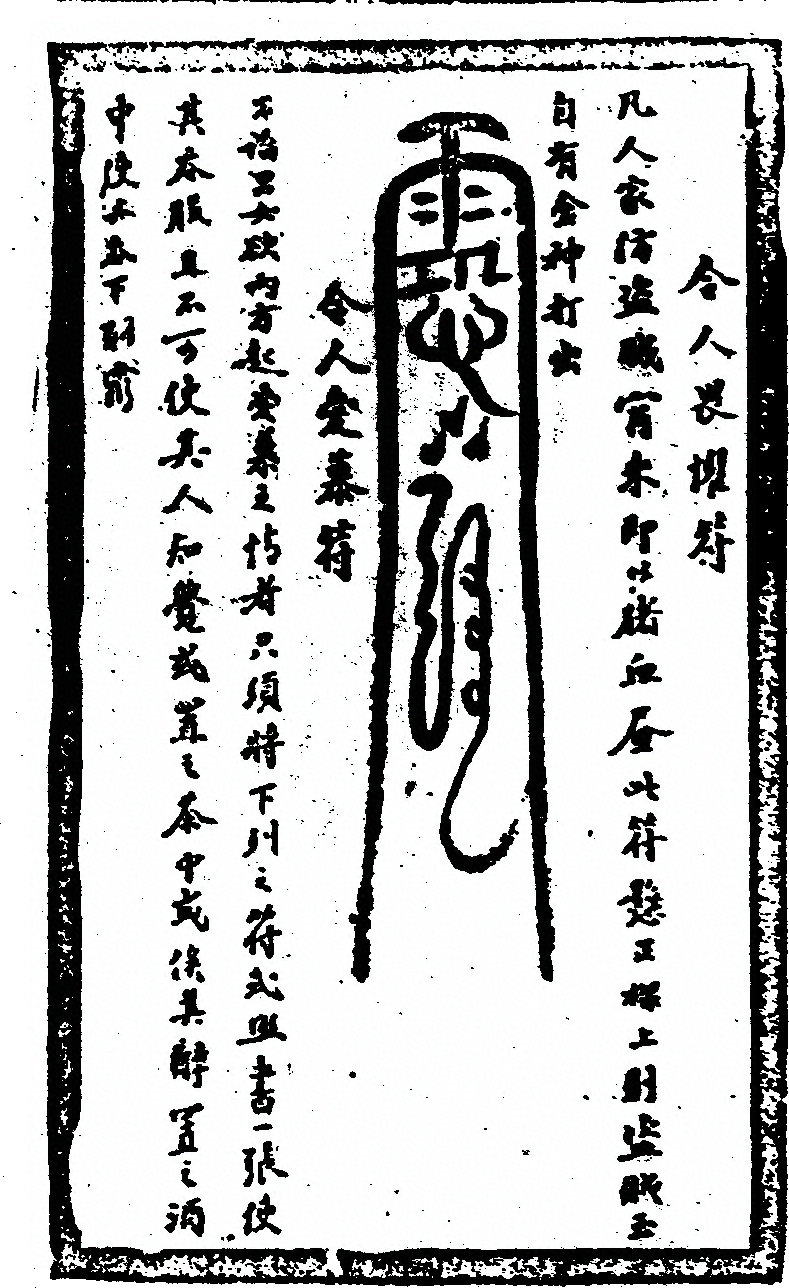 令人畏懼符
凡人家防盜賊宵來即以猪血畫此符懸正樑上則盜賊至
自有金神打出
令人愛慕符
不論男女欲內方起愛慕之情者只須將下列之符式照書一張使
其吞服且不可使其人知覺或置之茶中或俟其醉置之酒
中使其吞下即靈